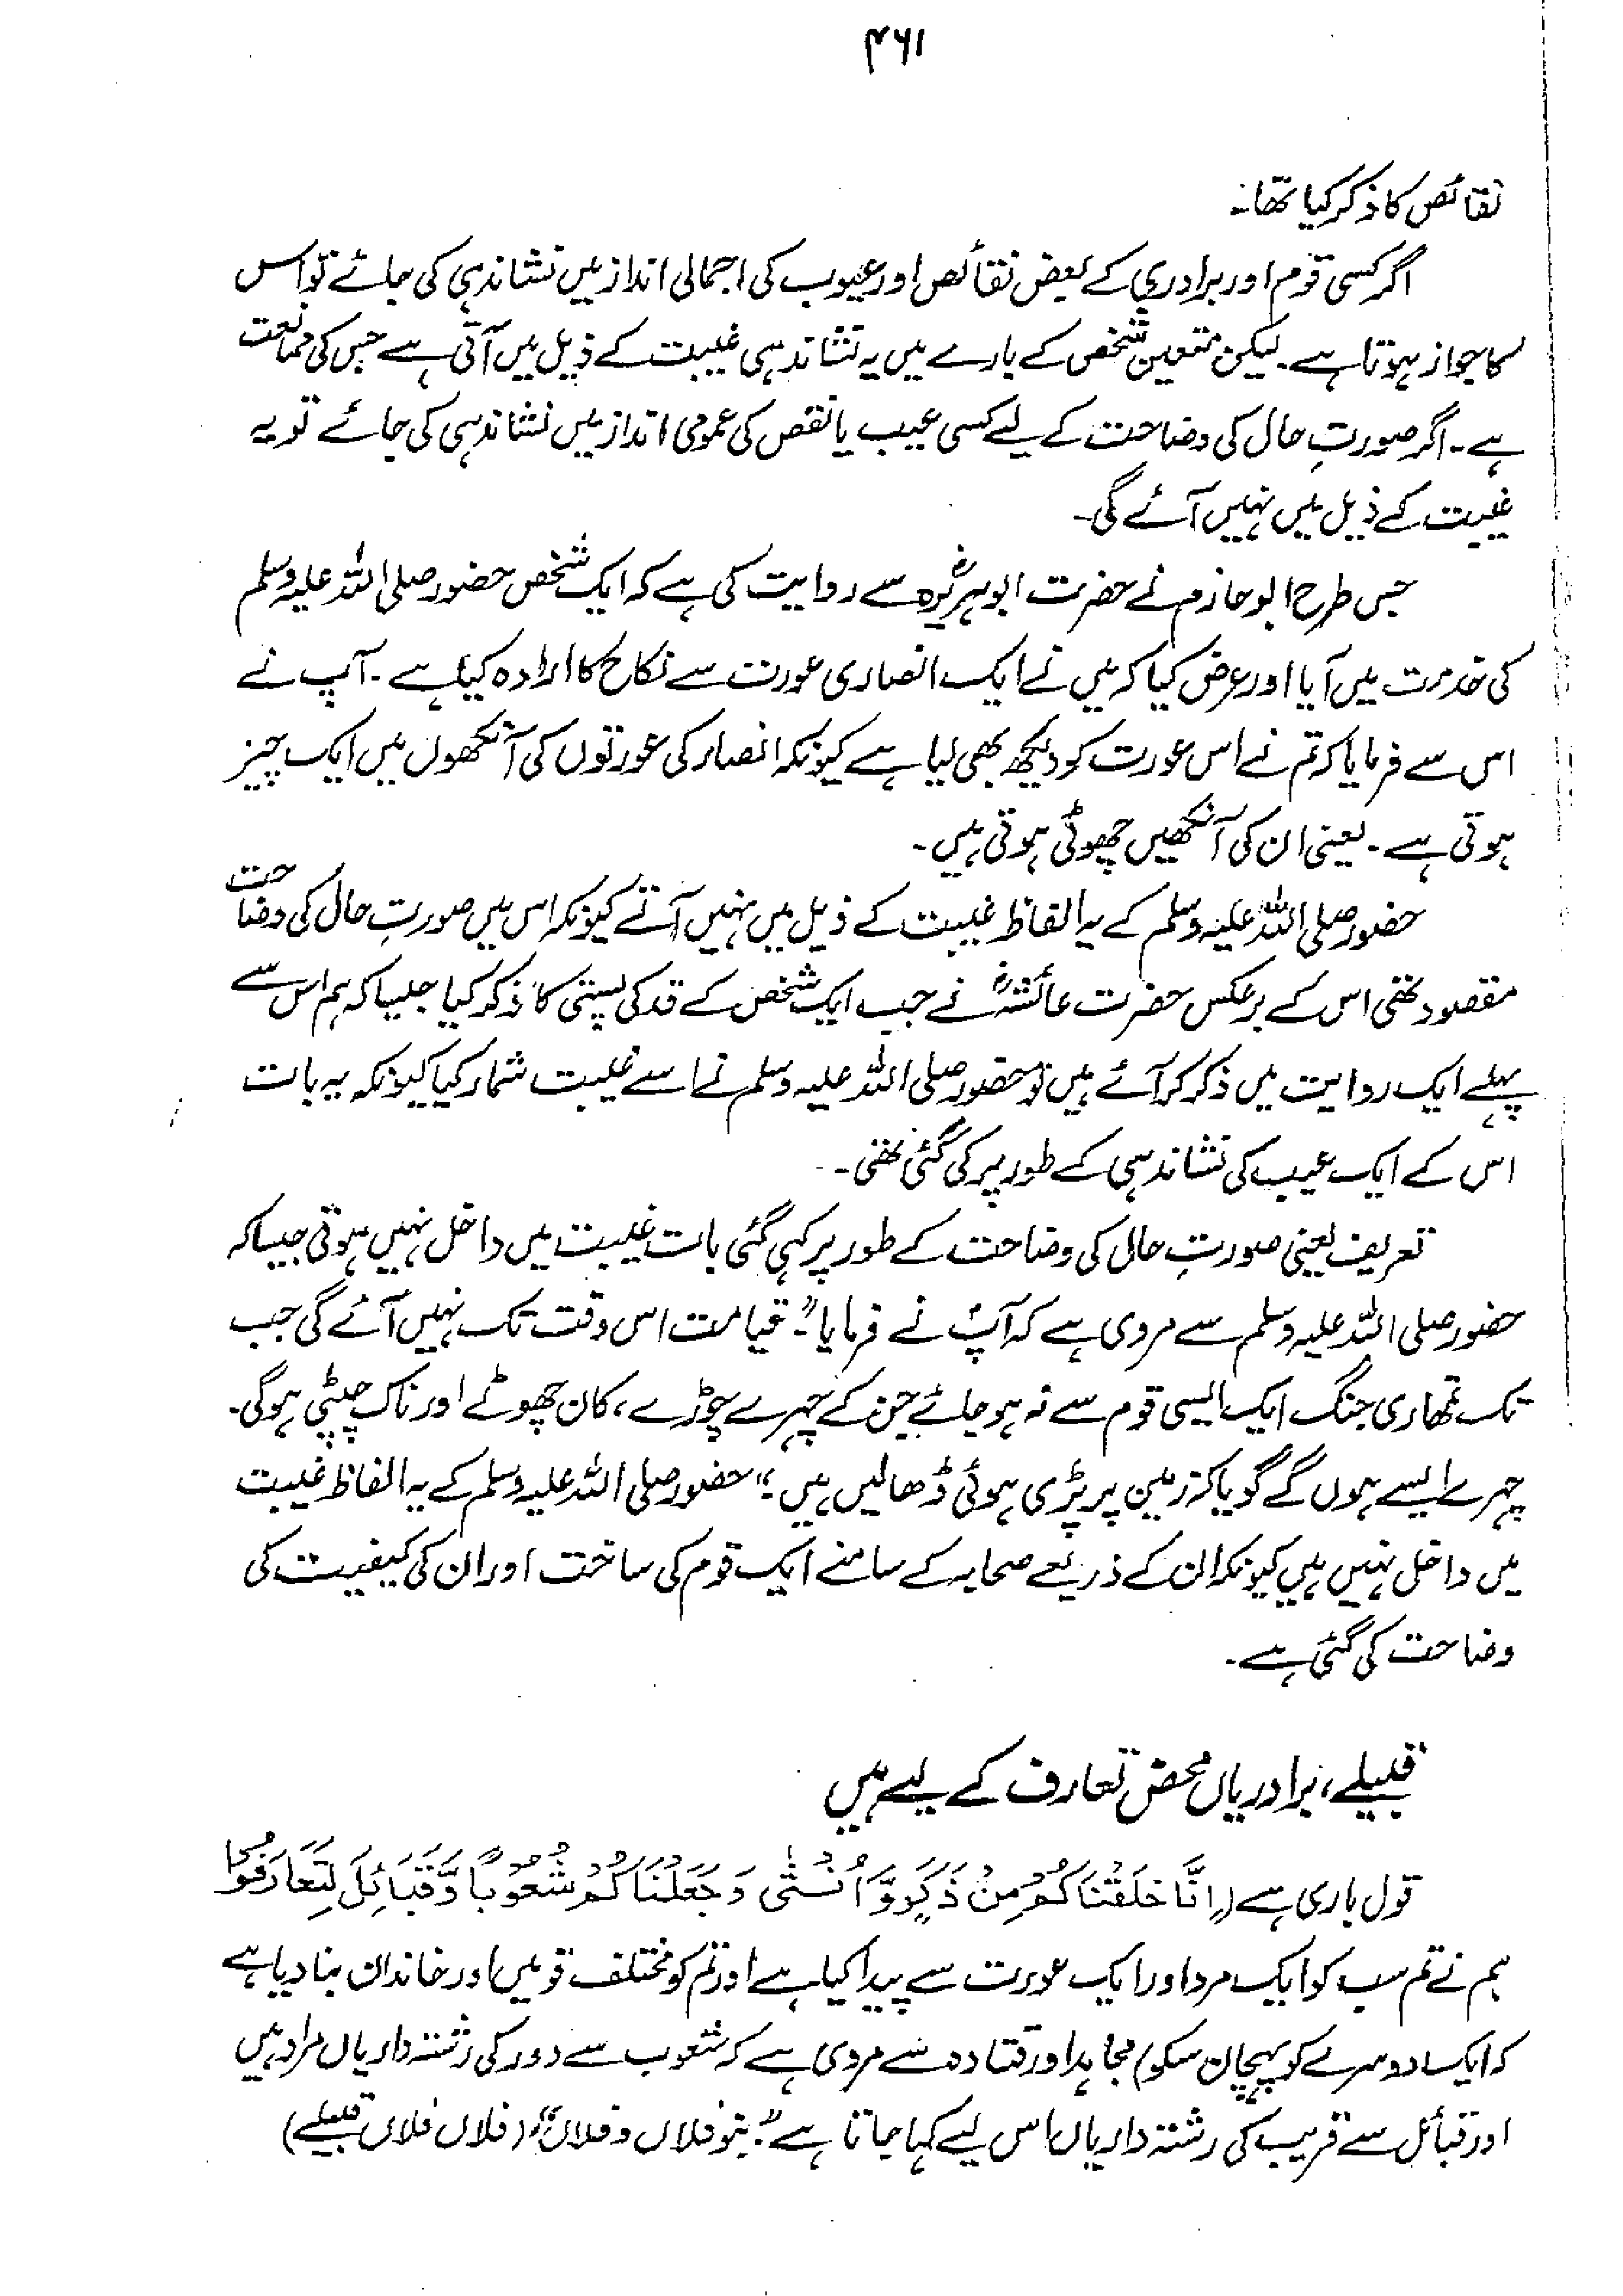 ۴۶۱
نقائص کا ذکر کیا تھا۔
اگر کسی قوم اور برادری کے بعض نقائص اور عیوب کی اجمالی انداز میں نشاندہی کی جائے تو اس
کا جواز ہوتا ہے۔ لیکن متعین شخص کے بارے میں یہ نشاندہی غیبت کے ذیل میں آتی ہے جس کی ممانعت
ہے۔ اگر صورتِ حال کی وضاحت کے لیے کسی عیب یا نقص کی عمومی انداز میں نشاندہی کی جائے تو یہ
غیبت کے ذیل میں نہیں آئے گی۔
جس طرح ابو حازم نے حضرت ابوہریرہؓ سے روایت کی ہے کہ ایک شخص حضور صلی اللہ علیہ وسلم
کی خدمت میں آیا اور عرض کیا کہ میں نے ایک انصاری عورت سے نکاح کا ارادہ کیا ہے۔ آپ نے
اس سے فرمایا کہ تم نے اس عورت کو دیکھ بھی لیا ہے کیونکہ انصار کی عورتوں کی آنکھوں میں ایک چیز
ہوتی ہے۔ یعنی ان کی آنکھیں چھوٹی ہوتی ہیں۔
حضور صلی اللہ علیہ وسلم کے یہ الفاظ غیبت کے ذیل میں نہیں آتے کیونکہ اس میں صورتِ حال کی وضاحت
مقصود تھی اس کے برعکس حضرت عائشہؓ نے جب ایک شخص کے قد کی پستی کا ذکر کیا جیسا کہ ہم اس سے
پہلے ایک روایت میں ذکر کر آئے ہیں تو حضور صلی اللہ علیہ وسلم نے اسے غیبت شمار کیا کیونکہ یہ بات
اس کے ایک عیب کی نشاندہی کے طور پر کی گئی تھی۔
تعریف یعنی صورتِ حال کی وضاحت کے طور پر کہی گئی بات غیبت میں داخل نہیں ہوتی جیسا کہ
حضور صلی اللہ علیہ وسلم سے مروی ہے کہ آپؐ نے فرمایا "۔ قیامت اس وقت تک نہیں آئے گی جب
تک تمھاری جنگ ایک ایسی قوم سے نہ ہو جائے جن کے چہرے چوڑے، کان چھوٹے اور ناک چپٹی ہوگی۔
چہرے ایسے ہوں گے گویا کہ زمین پر پڑی ہوئی ڈھالیں ہیں۔" حضور صلی اللہ علیہ وسلم کے یہ الفاظ غیبت
میں داخل نہیں ہیں کیونکہ ان کے ذریعے صحابہ کے سامنے ایک قوم کی ساخت اور ان کی کیفیت کی
وضاحت کی گئی ہے۔
قبیلے، برادریاں محض تعارف کے لیے ہیں
قول باری ہے (اِنَّا خَلَقْنَاکُمْ مِنْ ذَکَرٍ وَّ اُنْثٰی وَ جَعَلْنَاکُمْ شُعُوْبًا وَّقَبَائِلَ لِتَعَارَفُوْا
ہم نے تم سب کو ایک مرد اور ایک عورت سے پیدا کیا ہے اور تم کو مختلف قومیں اور خاندان بنا دیا ہے
کہ ایک دوسرے کو پہچان سکو) مجاہد اور قتادہ سے مروی ہے کہ شعوب سے دور کی رشتہ داریاں مراد ہیں
اور قبائل سے قریب کی رشتہ داریاں اس لیے کہا جاتا ہے "بنو فلاں و فلاں" (فلاں فلاں قبیلے)